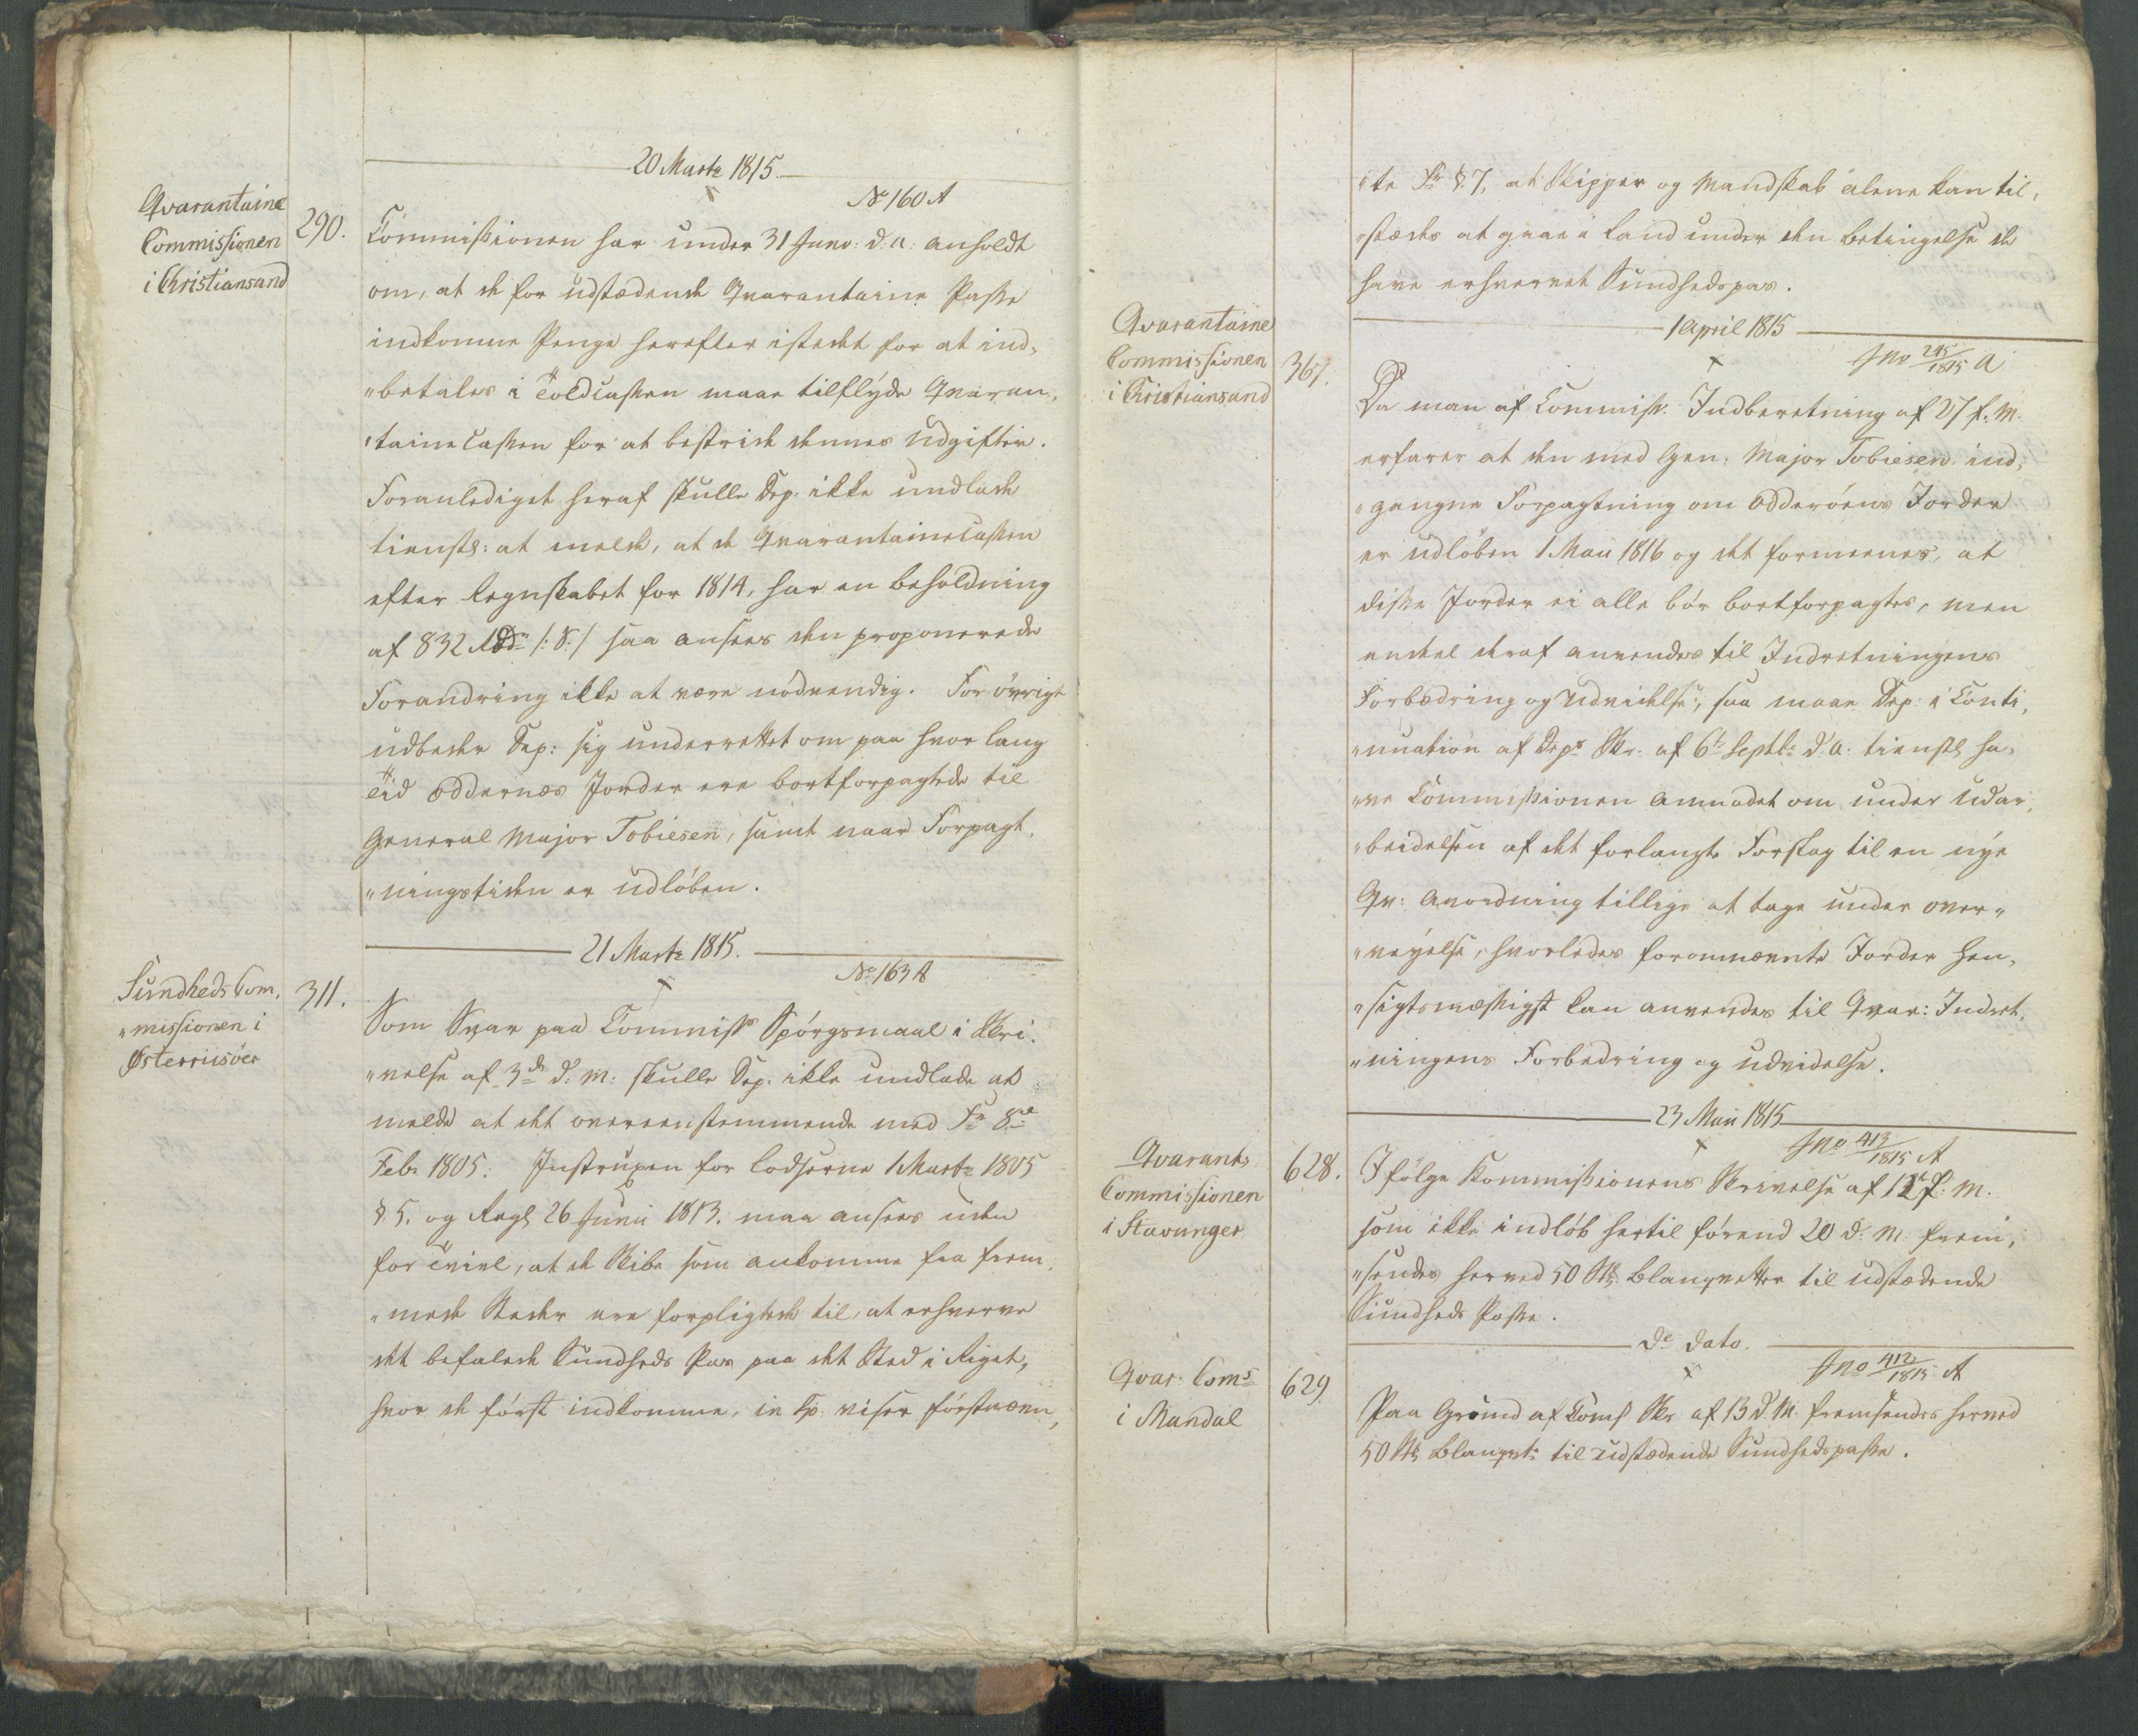 20 Marts 1815.
No 160 A
Qvarantaine
Commissionen
i Christiansand
290.
Commissionen har under 31 Janv: d: a: anholdt
om, at de for udstædende Qvarantaine Passe
indkomne Penge herefter istedet for at ind-
"betales i Toldcassen maae tilflyde Qvaran-
"taineCassen for at bestride dennes Udgifter.
Foranlediget heraf skulle Dep: ikke undlade
tienstl: at melde, at da Qvarantainecassen
efter Regnskabet for 1814, har en beholdning
af 832 Rdr /: S: / saa ansees den proponerede
Forandring ikke at være nødvendig. For øvrigt
udbeder Dep: sig underrettet om paa hvor lang
Tid Oddernæs Jorder ere bortforpagtede til
General Major Tobiesen, samt naar Forpagt-
"ningstiden er udløben.
21 Marts 1815.
No 163 A
Sundheds Com-
"missionen i
Østerriisøer
311.
Som Svar paa Commiss Spørgsmaal i Skri-
"velse af 3de d: M: skulle Dep: ikke undlade at
melde at det overeenstemmende med Fr 8de
Febr 1805. Instruxen for Lodserne 1 Marts 1805
§ 5. og Regl 26 Junii 1813. maa ansees uden
for Tvivl, at de Skibe som ankomme fra frem-
"mede Steder ere forpligtede til, at erhverve
det befalede Sundheds Pas paa det Sted i Riget,
hvor de først indkomme, viser førstnævn-
"te Fr § 7, at Skipper og Mandskab alene kan til-
"stædes at gaae i Land under den betingelse de
have erhvervet Sundhedspas.
1 April 1815
Jno 245/1815 A
Qvarantaine
Commissionen
i Christiansand
367.
Da man af Commiss. Indberetning af 27 f. M.
erfarer at den med Gen: Major Tobiesen ind-
"gangne Forpagtning om Odderøens Jorder
er udløben 1 Maii 1816 og det formeenes, at
disse Jorder ei alle bør bortforpagtes, men
endeel deraf anvendes til Indretningens
Forbedring og Udvidelse; saa maae Dep: i Conti-
"nuation af Deps Skr: af 6te Septbr d: a: tienstl ha-
"ve Commissionen anmodet om under Udar-
"beidelsen af det forlangte Forslag til en nye
Qv: Anordning tillige at tage under over-
"veyelse, hvorledes foromnævnte Jorder hen-
"sigtsmæssigst kan anvendes til Qvar: Indret-
"ningens Forbedring og udvidelse.
23 Maii 1815
Jno 413/1815 A
Qvarants
Commissionen
i Stavanger
628.
I følge Kommissionens Skrivelse af 12 f: M.
som ikke indløb hertil førend 20 d: M: frem-
"sendes herved 50 Stk: Blanqvetter til udstædende
Sundheds Passe.
De dato.
Jno 412/1815 A
Qvar: Coms
i Mandal
629
Paa Grund af Coms Skr af 13 d. M. fremsendes herved
50 Stk Blanqvet: til udstædende Sundhedspasse.